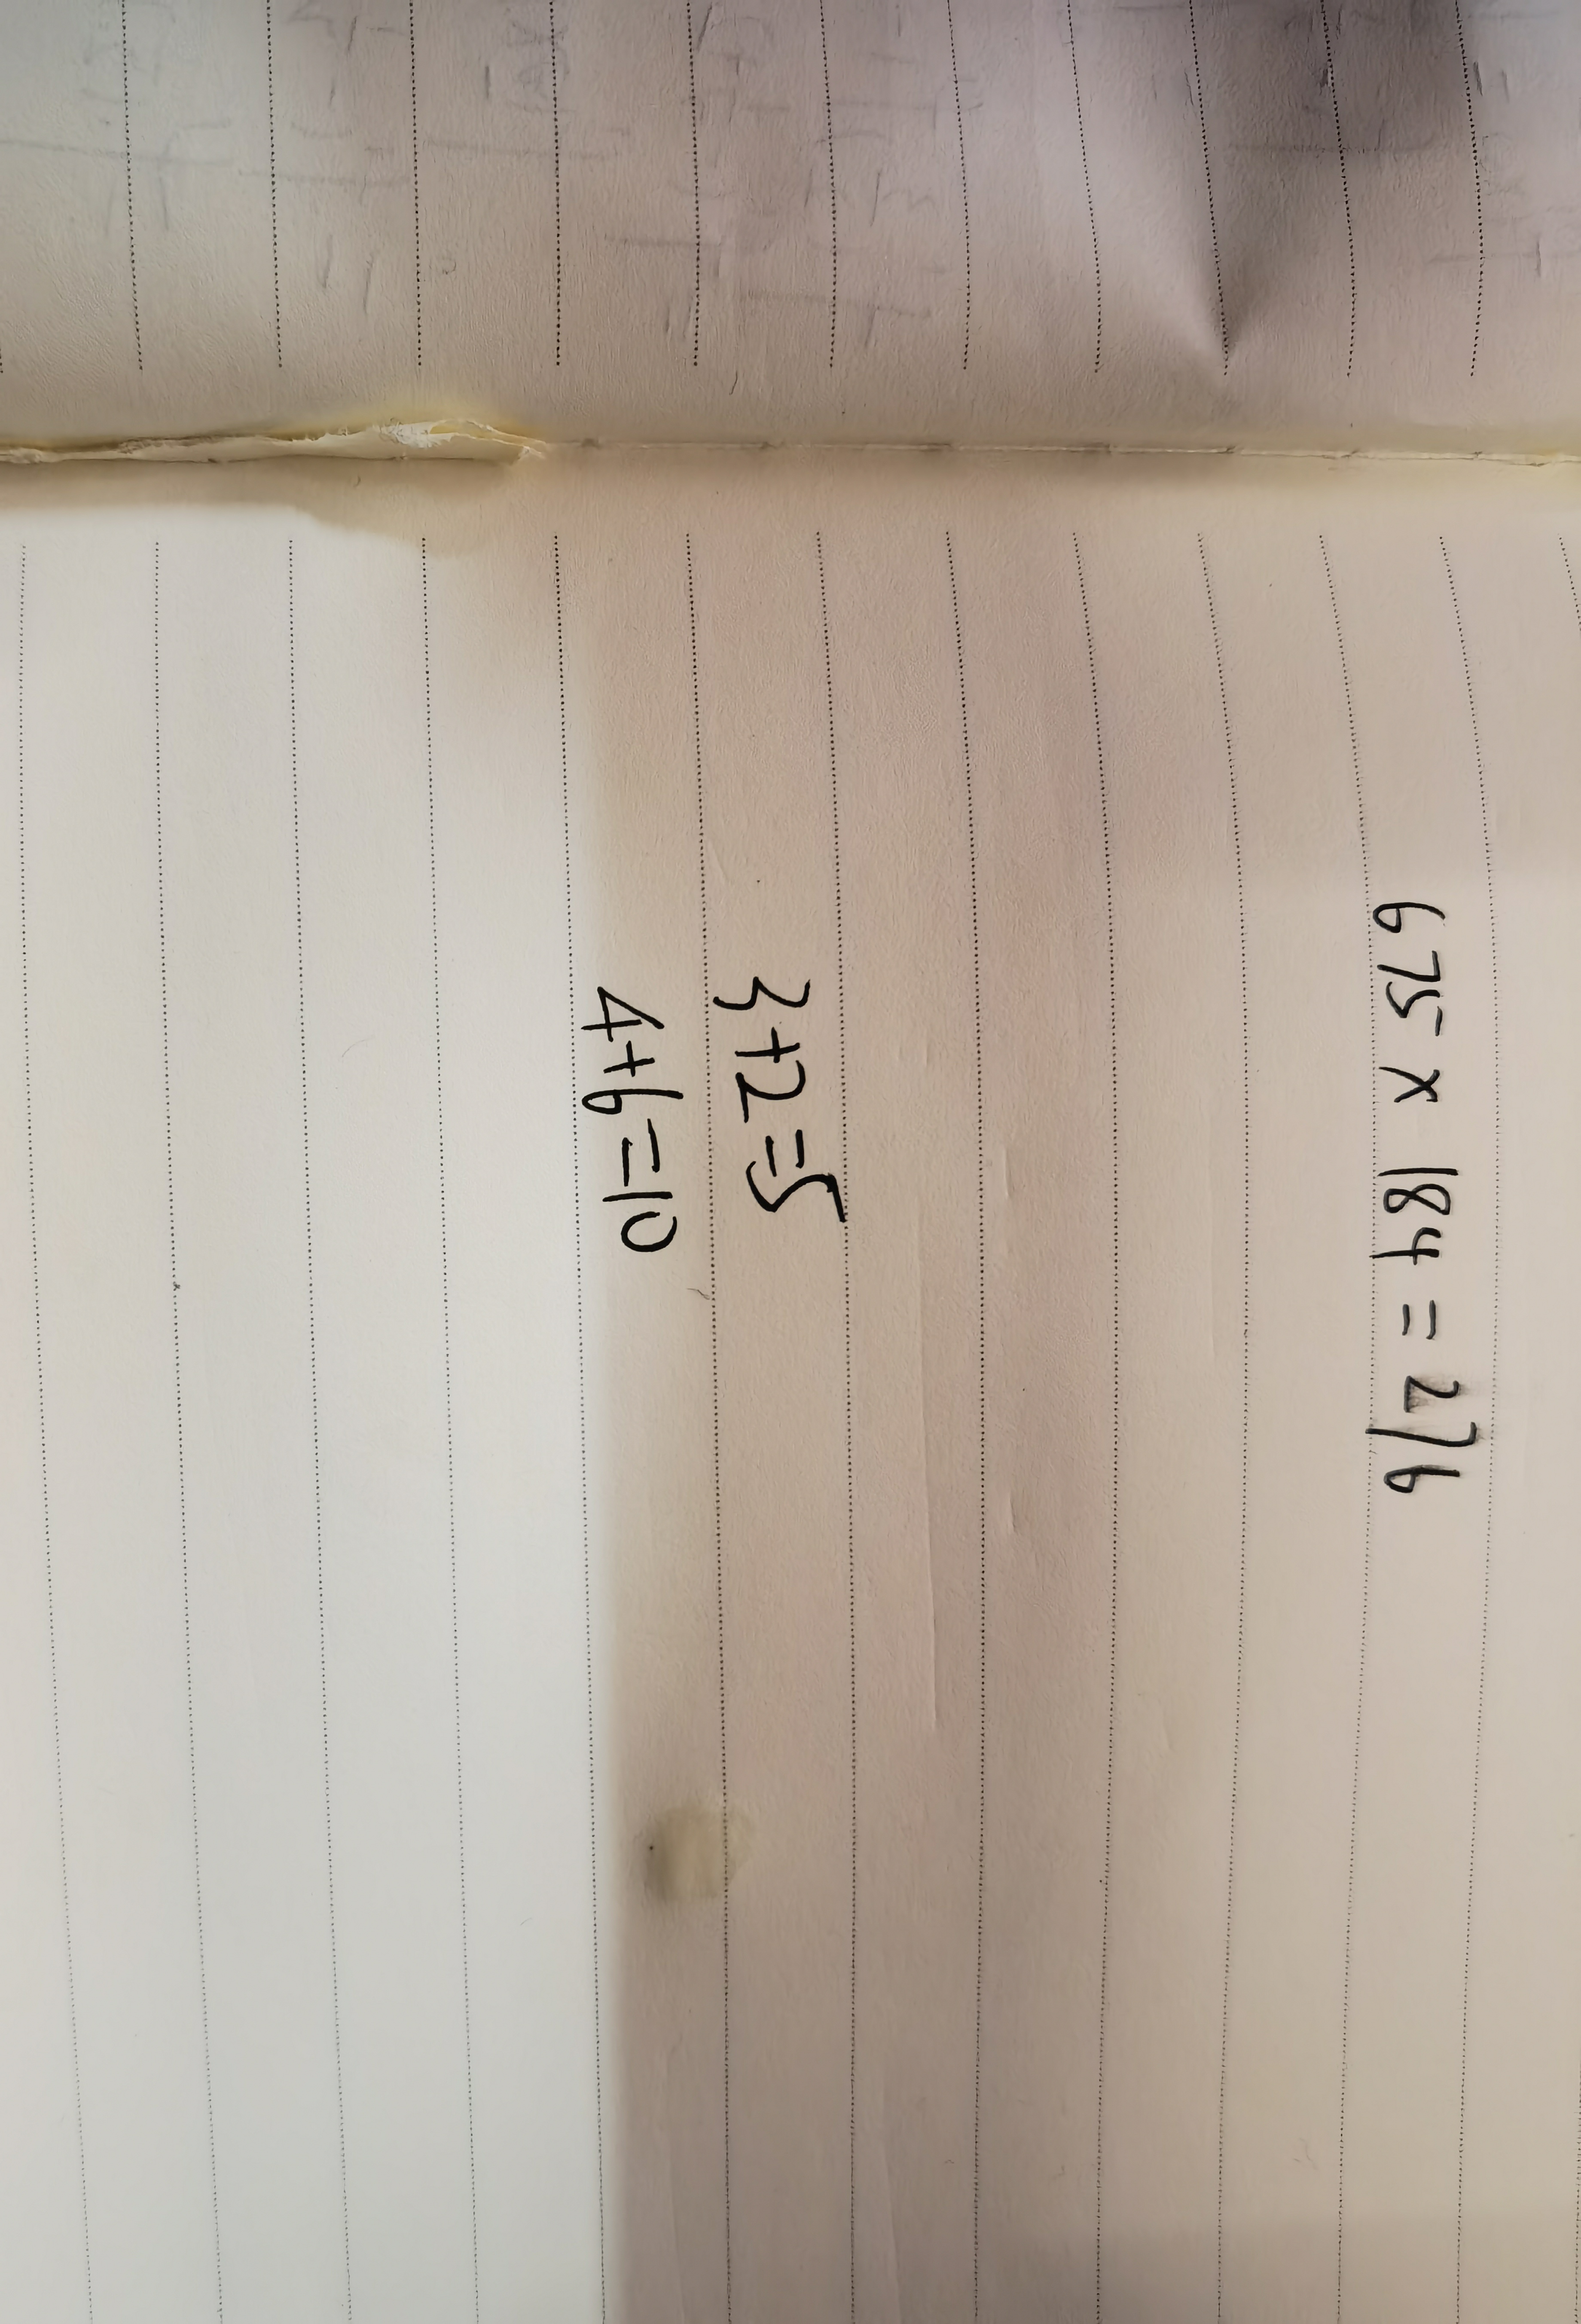 675 × 184 = 276
3+2=5
4+6=10